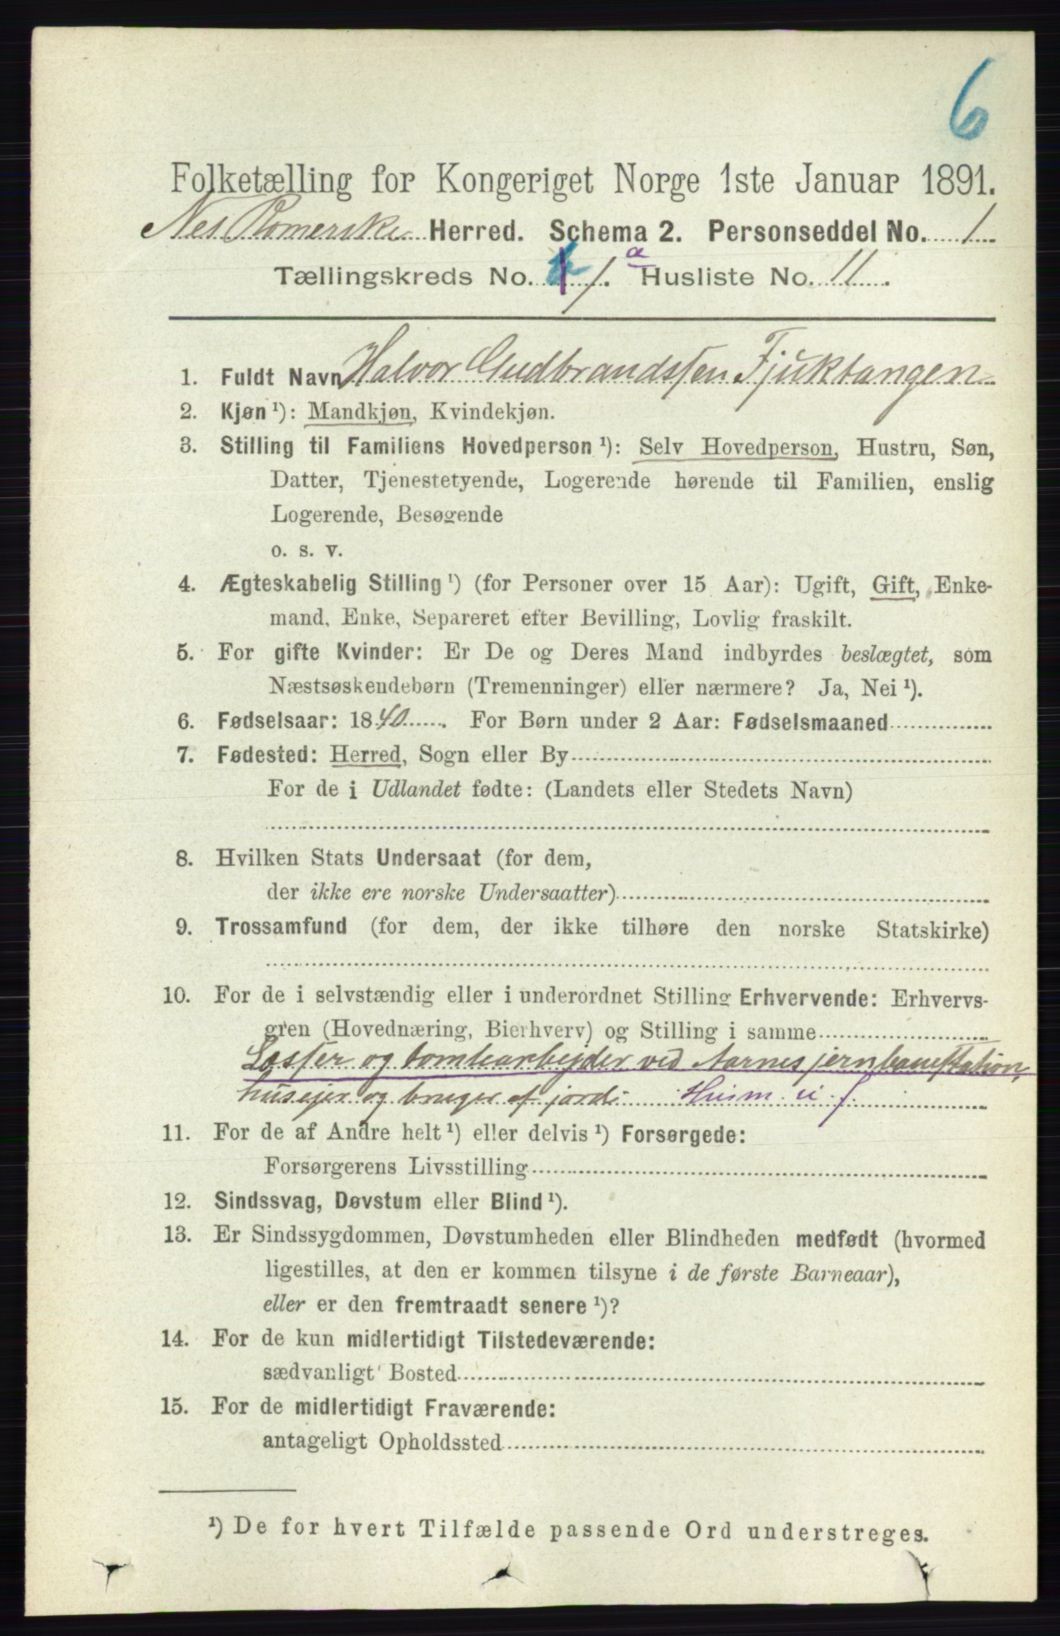 6
Folketælling for Kongeriget Norge 1ste Januar 1891.
Nes Romerike Herred. Schema 2. Personseddel No. 1
Tællingskreds No. 1 a Husliste No. 11.
1. Fuldt Navn Halvor Gudbrandssen Fjuktangen
2. Kjøn ¹): Mandkjøn, Kvindekjøn.
3. Stilling til Familiens Hovedperson ¹): Selv Hovedperson, Hustru, Søn,
Datter, Tjenestetyende, Logerende hørende til Familien, enslig
Logerende, Besøgende
o. s. v.
4. Ægteskabelig Stilling ¹) (for Personer over 15 Aar): Ugift, Gift, Enke-
mand, Enke, Separeret efter Bevilling, Lovlig fraskilt.
5. For gifte Kvinder: Er De og Deres Mand indbyrdes beslægtet, som
Næstsøskendebørn (Tremenninger) eller nærmere? Ja, Nei ¹).
6. Fødselsaar: 1840. For Børn under 2 Aar: Fødselsmaaned
7. Fødested: Herred, Sogn eller By
For de i Udlandet fødte: (Landets eller Stedets Navn)
8. Hvilken Stats Undersaat (for dem,
der ikke ere norske Undersaatter)
9. Trossamfund (for dem, der ikke tilhøre den norske Statskirke)
10. For de i selvstændig eller i underordnet Stilling Erhvervende: Erhvervs-
gren (Hovednæring, Bierhverv) og Stilling i samme
Losser og tomtearbejder ved Aarnes jernbanestation,
husejer og bruger af jord Husm. u. j.
11. For de af Andre helt ¹) eller delvis ¹) Forsørgede:
Forsørgerens Livsstilling
12. Sindssvag, Døvstum eller Blind ¹).
13. Er Sindssygdommen, Døvstumheden eller Blindheden medfødt (hvormed
ligestilles, at den er kommen tilsyne i de første Barneaar),
eller er den fremtraadt senere ¹)?
14. For de kun midlertidigt Tilstedeværende:
sædvanligt Bosted
15. For de midlertidigt Fraværende:
antageligt Opholdssted
¹) De for hvert Tilfælde passende Ord understreges.